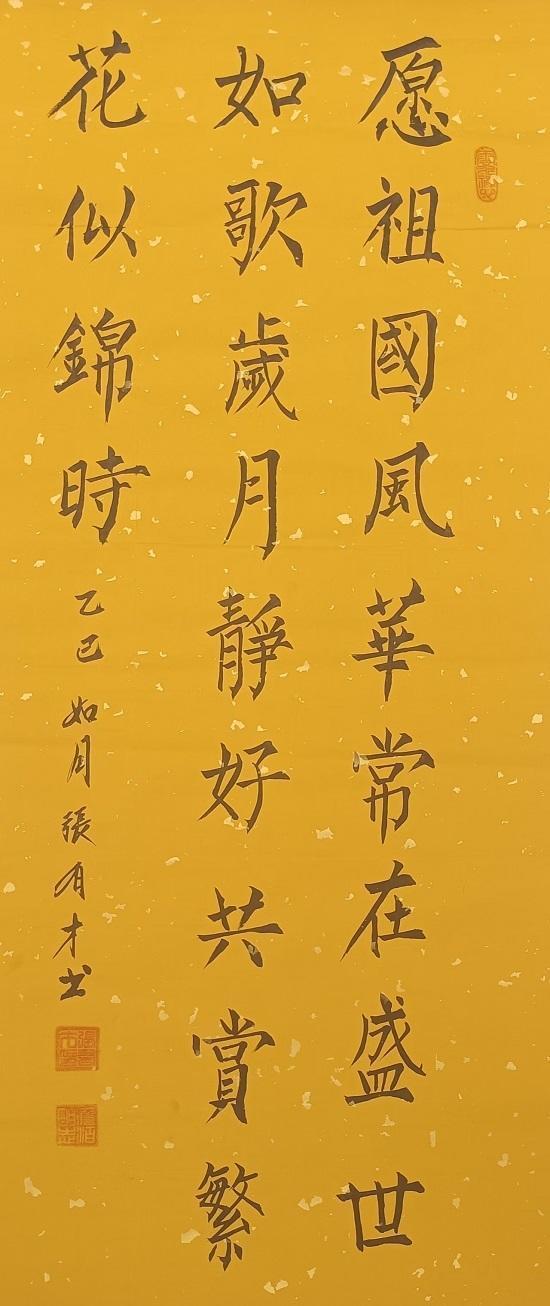 愿祖國風華常在盛世
如歌歲月靜好共賞繁
花似錦時
乙巳如月張有才書